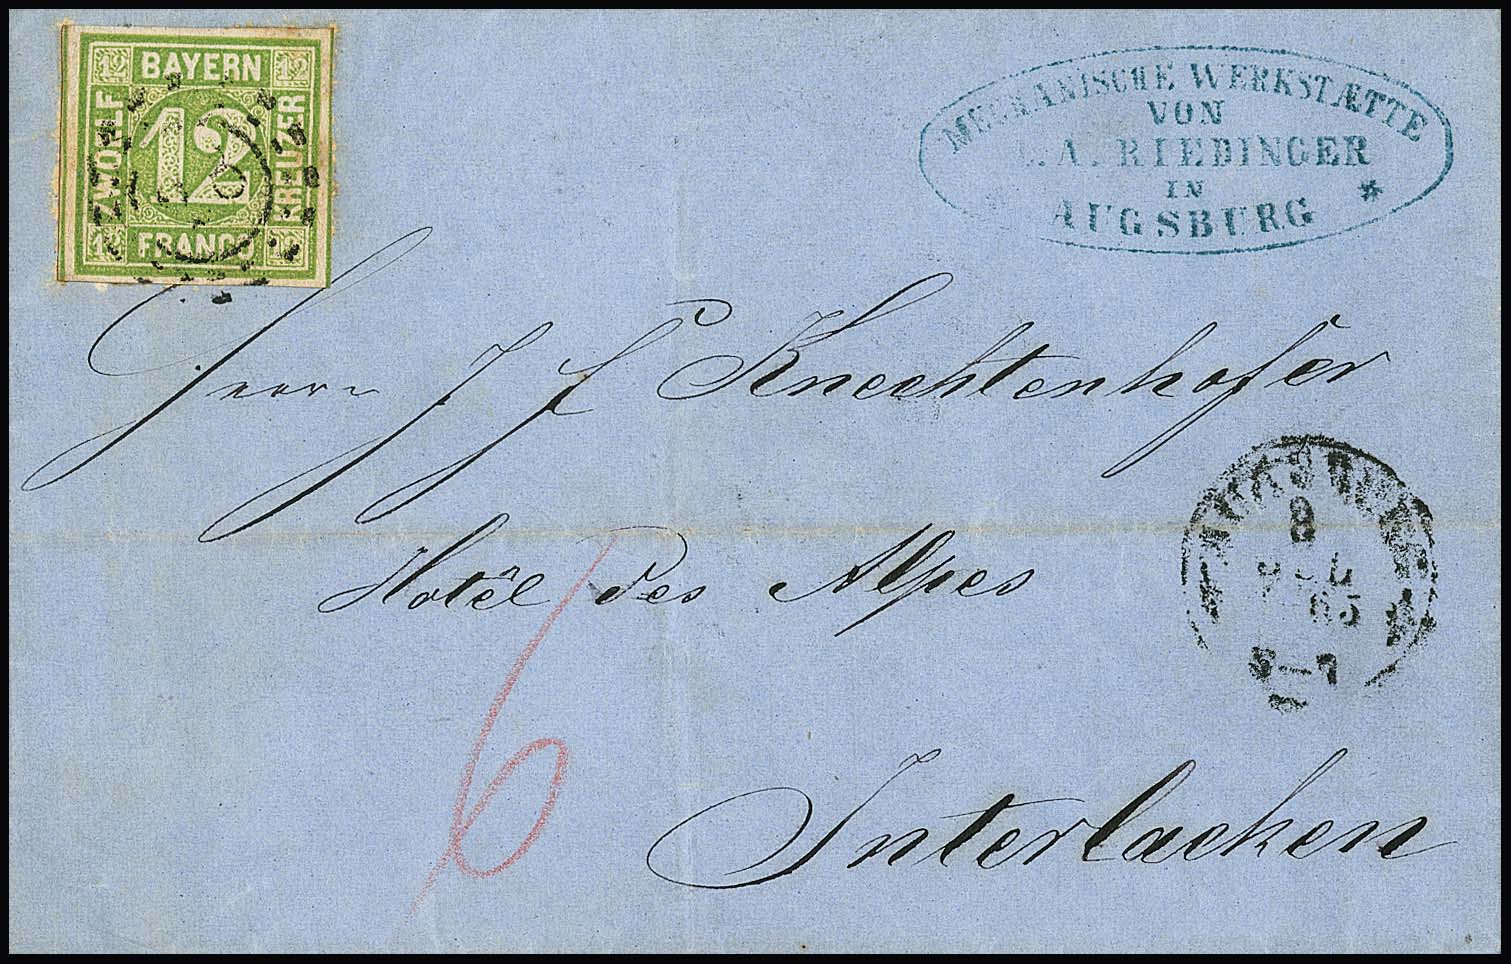 12 BAYERN 12
ZWÖLF 12 KREUZER
12 FRANCO 12
MECHANISCHE WERKSTÆTTE
VON
L. A. RIEDINGER
IN
AUGSBURG *
Herrn J J Knechtenhofer
Hotêl des Alpes
Interlacken
6
AUGSBURG
8
JUL
65